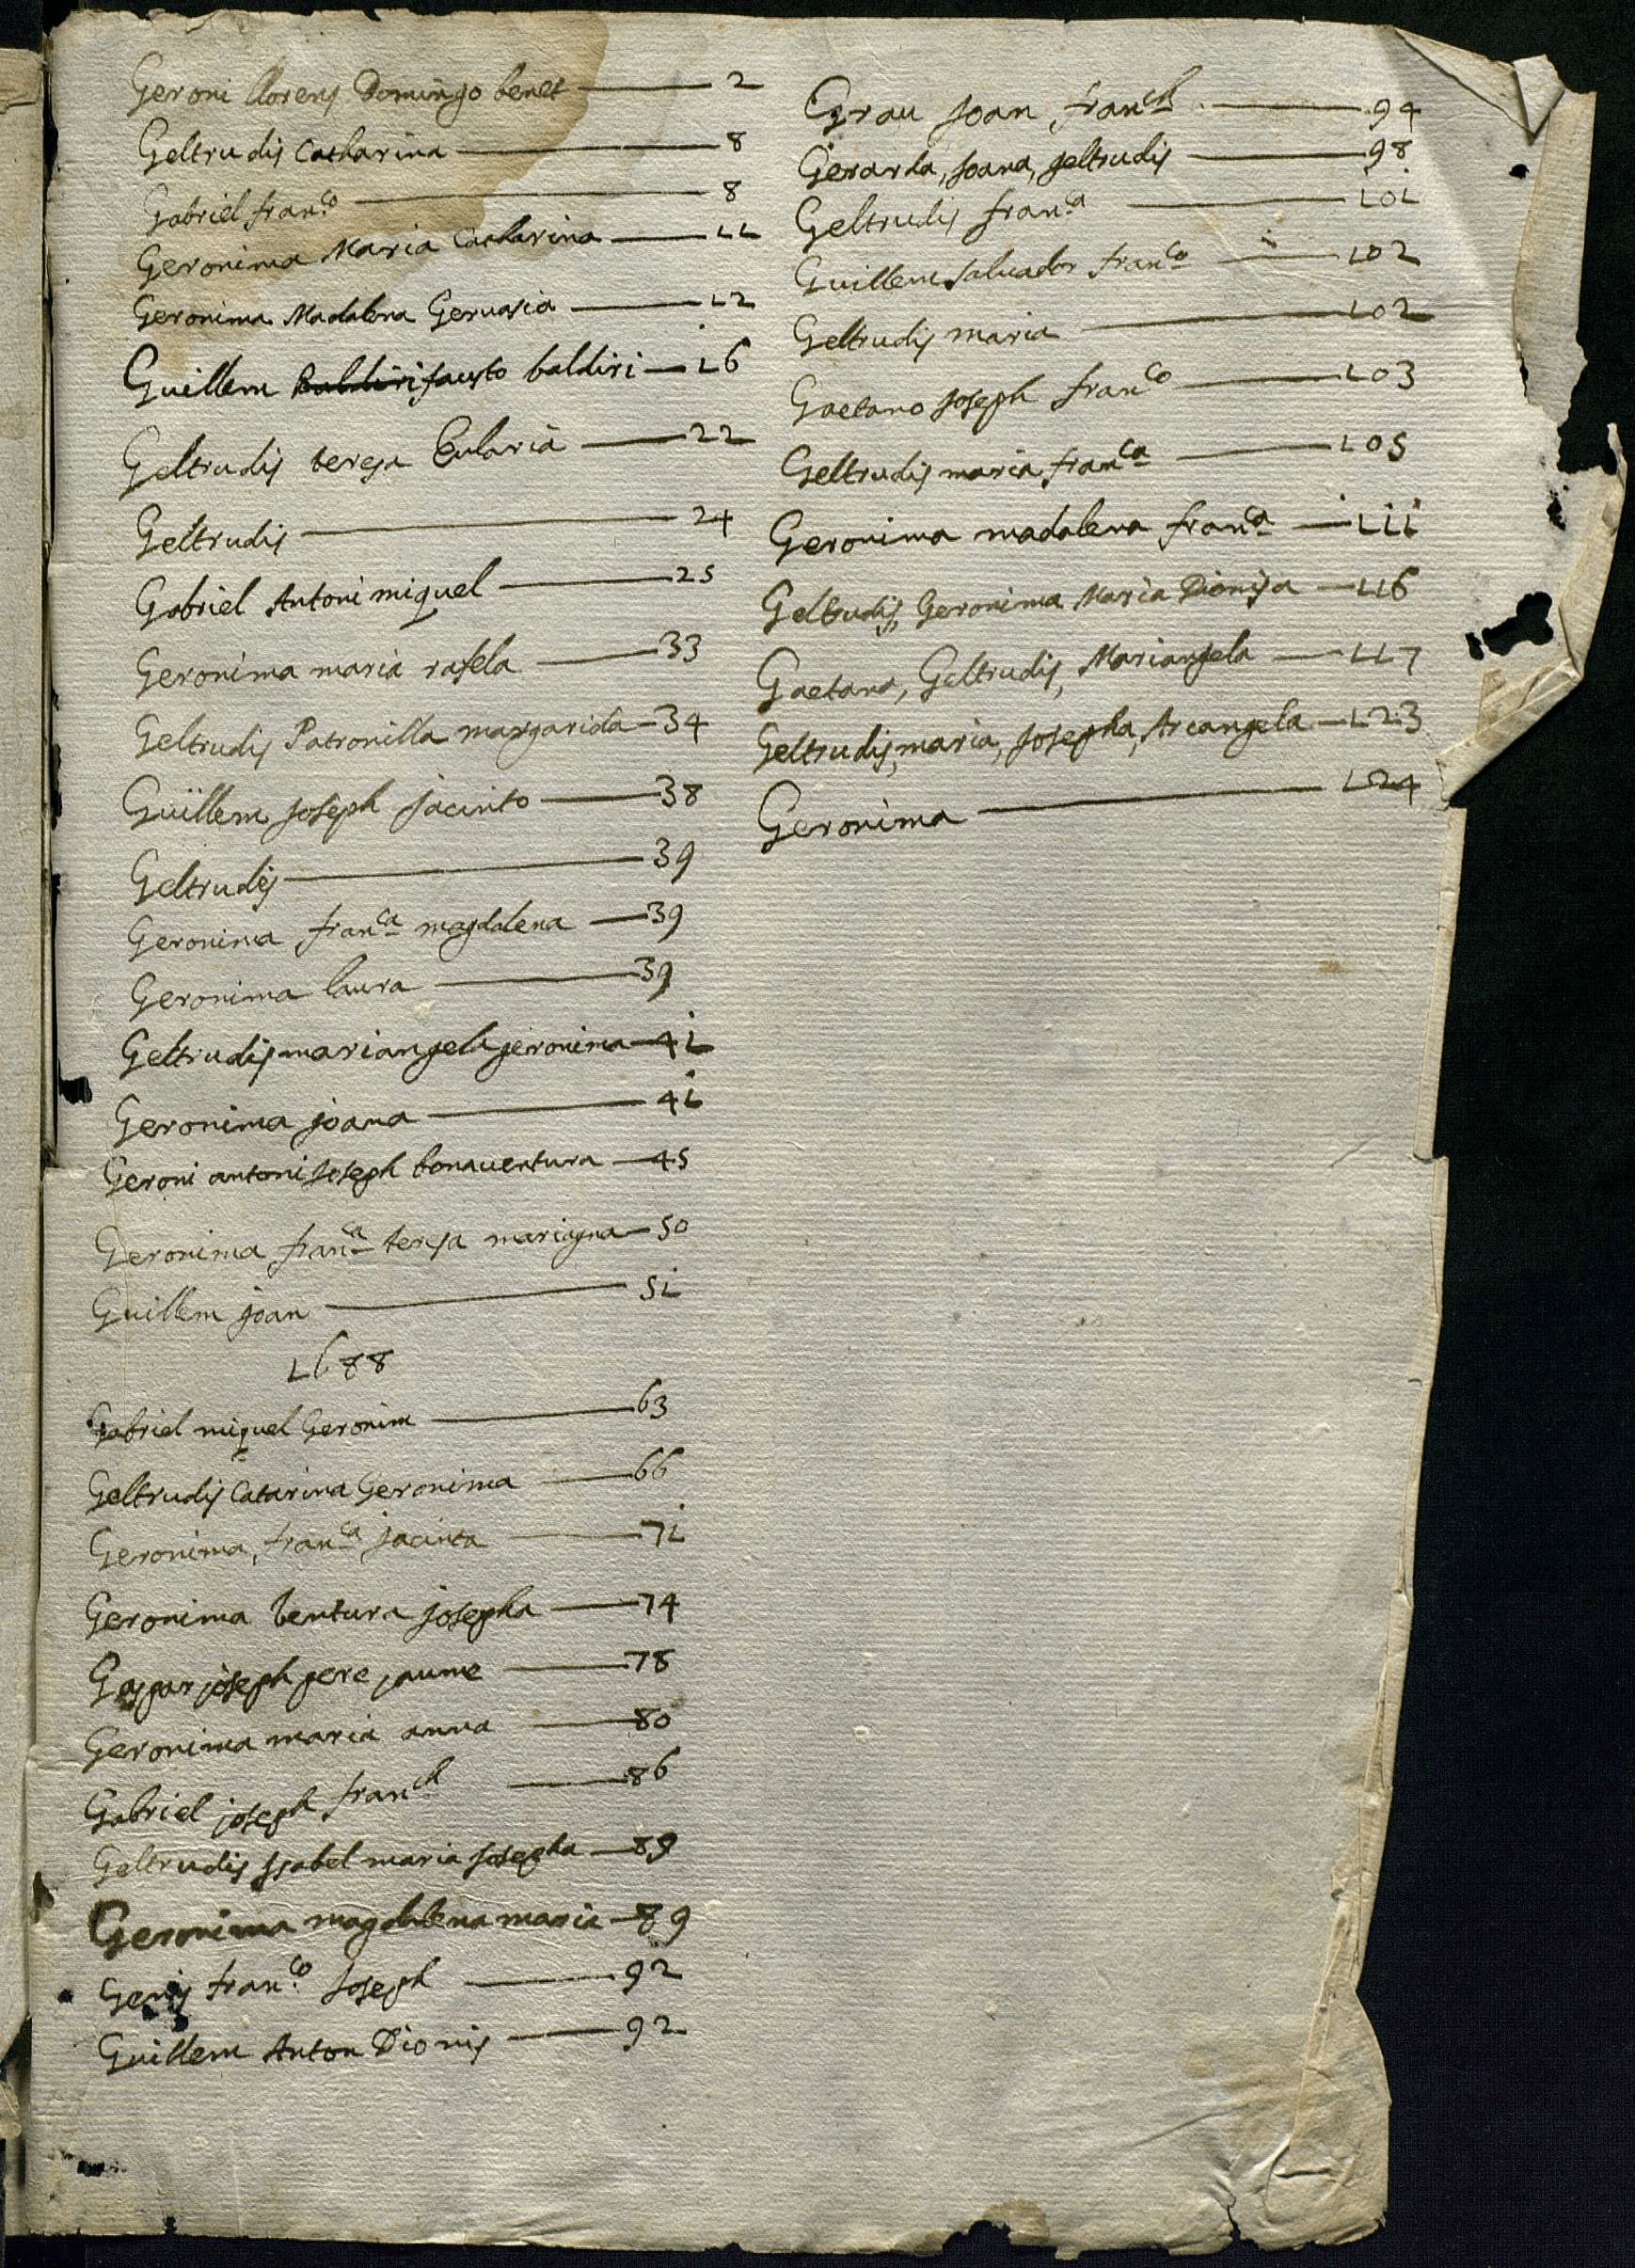 Geroni llorens Domingo benet — 2
Geltrudis Catharina — 8
Gabriel fran.co — 8
Geronima Maria Catharina — 11
Geronima Madalena Geruasia — 12
Guillem Baldiri fausto baldiri — 16
Geltrudis teresa Eularia — 22
Geltrudis — 24
Gabriel Antoni miquel — 25
Geronima maria rafela — 33
Geltrudis Patronilla margarida — 34
Guillem Joseph Jacinto — 38
Geltrudis — 39
Geronima fran.ca magdalena — 39
Geronima laura — 39
Geltrudis mariangela geronima — 41
Geronima joana — 41
Geroni antoni Joseph bonauentura — 45
Geronima fran.ca teresa mariagna — 50
Guillem joan — 51
1688
Gabriel miquel Geronim — 63
Geltrudis Catarina Geronima — 66
Geronima, fran.ca Jacinta — 71
Geronima bentura josepha — 74
Gaspar joseph pere jaume — 78
Geronima maria anna — 80
Gabriel joseph fran.ch — 86
Geltrudis Isabel maria Josepha — 89
Geronima magdalena maria — 89
Genis fran.co Joseph — 92
Guillem Anton Dionis — 92
Grau Joan fran.ch — 94
Gerarda, Joana, geltrudis — 98
Geltrudis fran.a — 101
Guillem saluador fran.co — 102
Geltrudis maria — 102
Gaetano Joseph fran.co — 103
Geltrudis maria fran.ca — 105
Geronima madalena fran.a — 111
Geltrudis, Geronima Maria Dionisa — 116
Gaetana, Geltrudis, Mariangela — 117
Geltrudis, maria, Josepha, Arcangela — 123
Geronima — 124